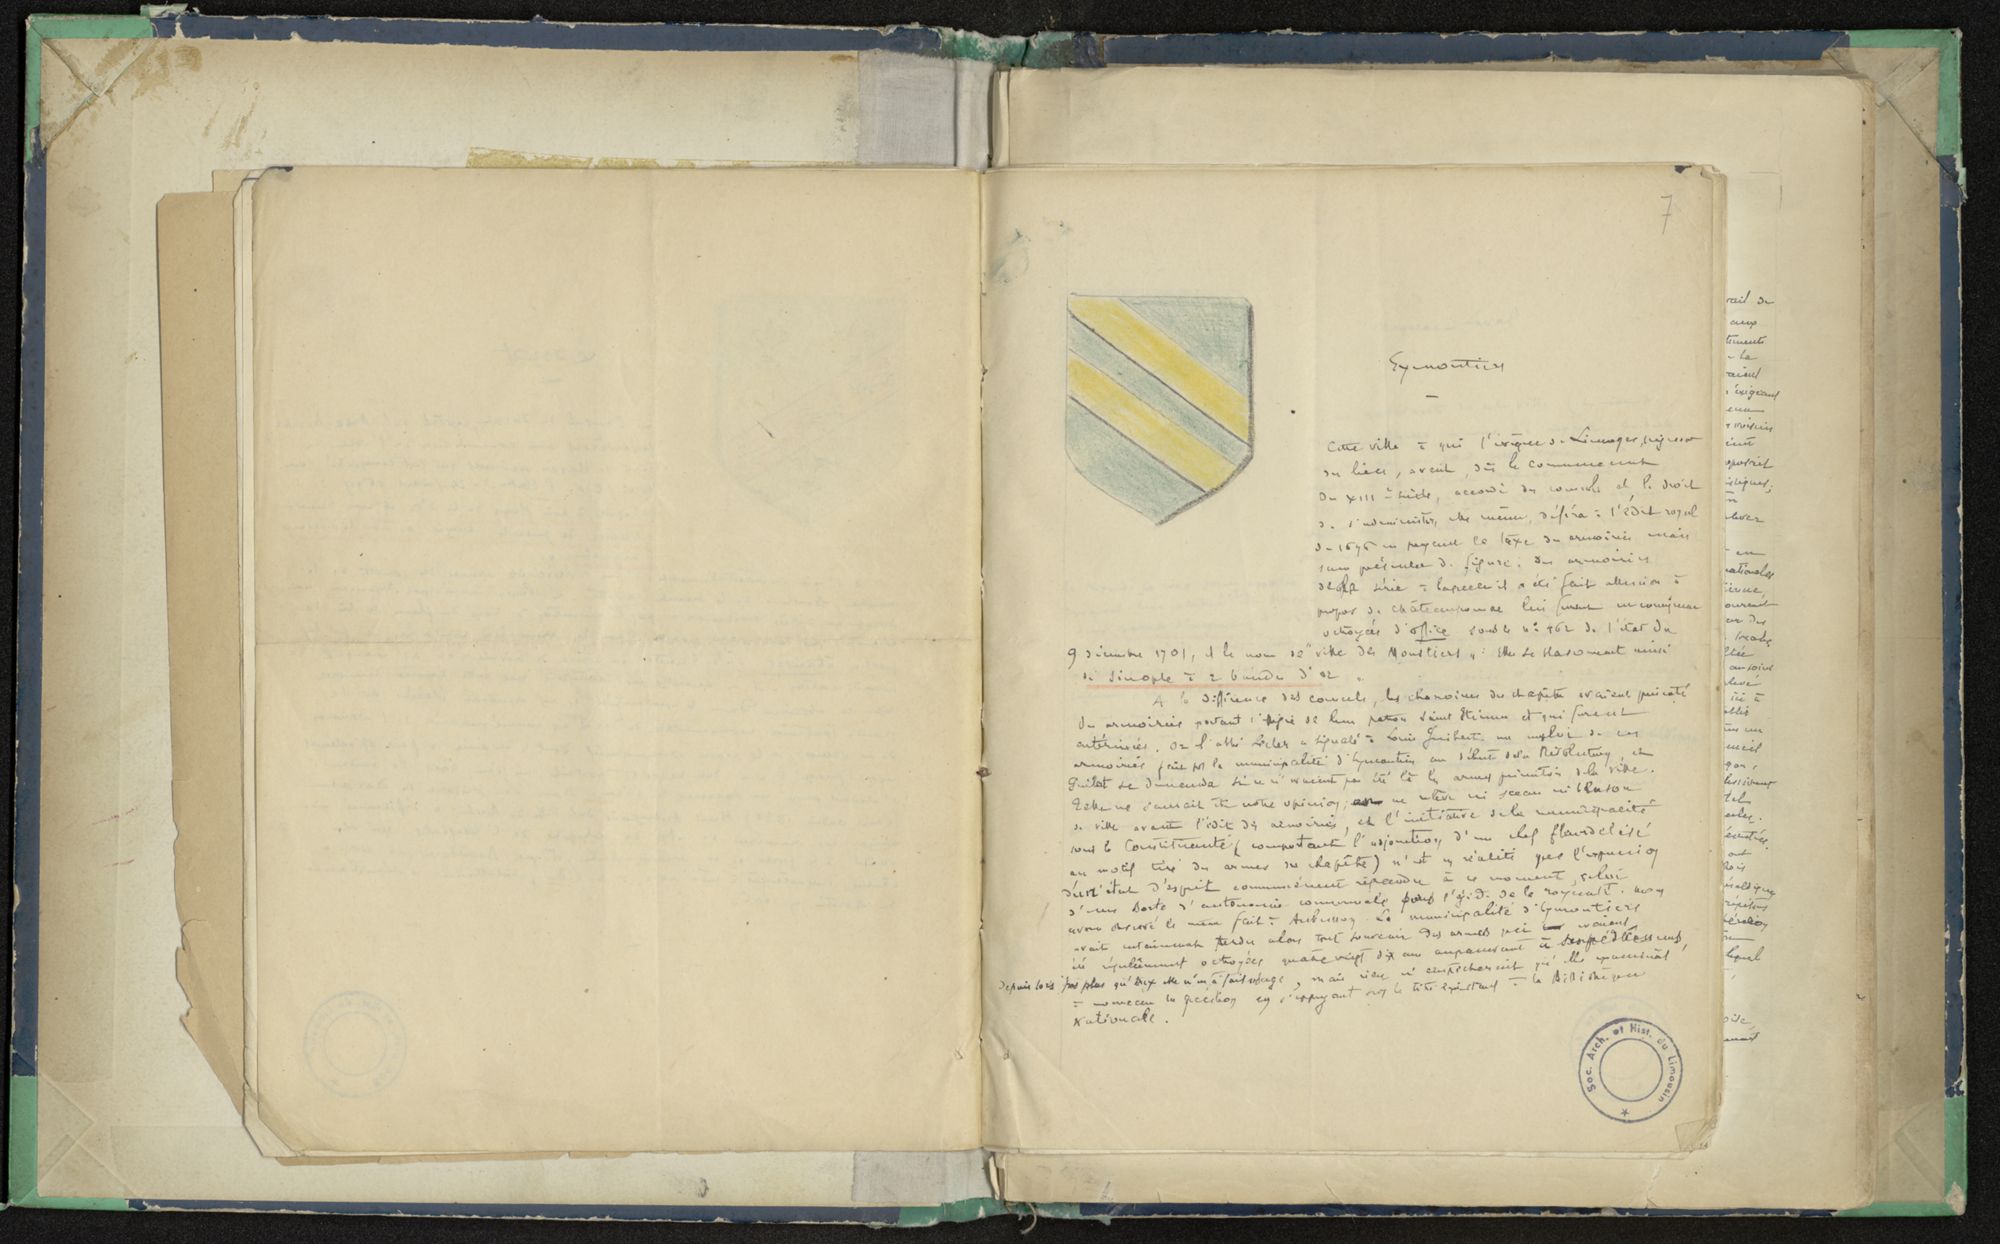 7
Eymoutiers
Cette ville à qui l'évêque de Limoges, seigneur
du lieu, avait, dès le commencement
du XIIIe siècle, accordé des consuls et le droit
de s'administrer elle même, déféra à l'édit royal
de 1696 en payant la taxe des armoiries mais
sans présenter de figure. Des armoiries
de la série à laquelle il a été fait allusion à
propos de Châteauponsac lui furent en conséquence
octroyées d'office sous le n° 462 de l'état du
9 décembre 1701, et le nom de "ville des Moustiers" : elles se blasonnent ainsi
de sinople à 2 bandes d'or
A la différence des consuls, les chanoines du chapitre avaient présenté
des armoiries portant l'effigie de leur patron Saint Etienne et qui furent
entérinées. Or l'abbé Lecler a signalé à Louis Guibert un emploi de ces
armoiries fait par la municipalité d'Eymoutiers au début de la Révolution, et
Guibert se demanda si ce n'avaient pas été là les armes primitives de la ville.
Telle ne saurait être notre opinion; on ne relève ni sceau ni blason
de ville avant l'édit des armoiries, et l'initiative de la municipalité
sous la Constituante (comportant l'adjonction d'un chef fleurdelisé
au motif tiré des armes du chapitre) n'est en réalité que l'expression
d'un état d'esprit communément répandu à ce moment, celui
d'une sorte d'autonomie communale sous l'égide de la royauté. Nous
avons observé le même fait à Aubusson. La municipalité d'Eymoutiers
avait certainement perdu alors tout souvenir des armes qui avaient
été régulièrement octroyées quatre vingt dix ans auparavant à ses prédécesseurs,
Depuis lors pas plus qu'eux elle n'en a fait usage, mais rien n'empêcherait qu'elle examinât
à nouveau la question en s'appuyant sur le titre existant à la Bibliothèque
Nationale.
Soc. Arch. et Hist. du Limousin